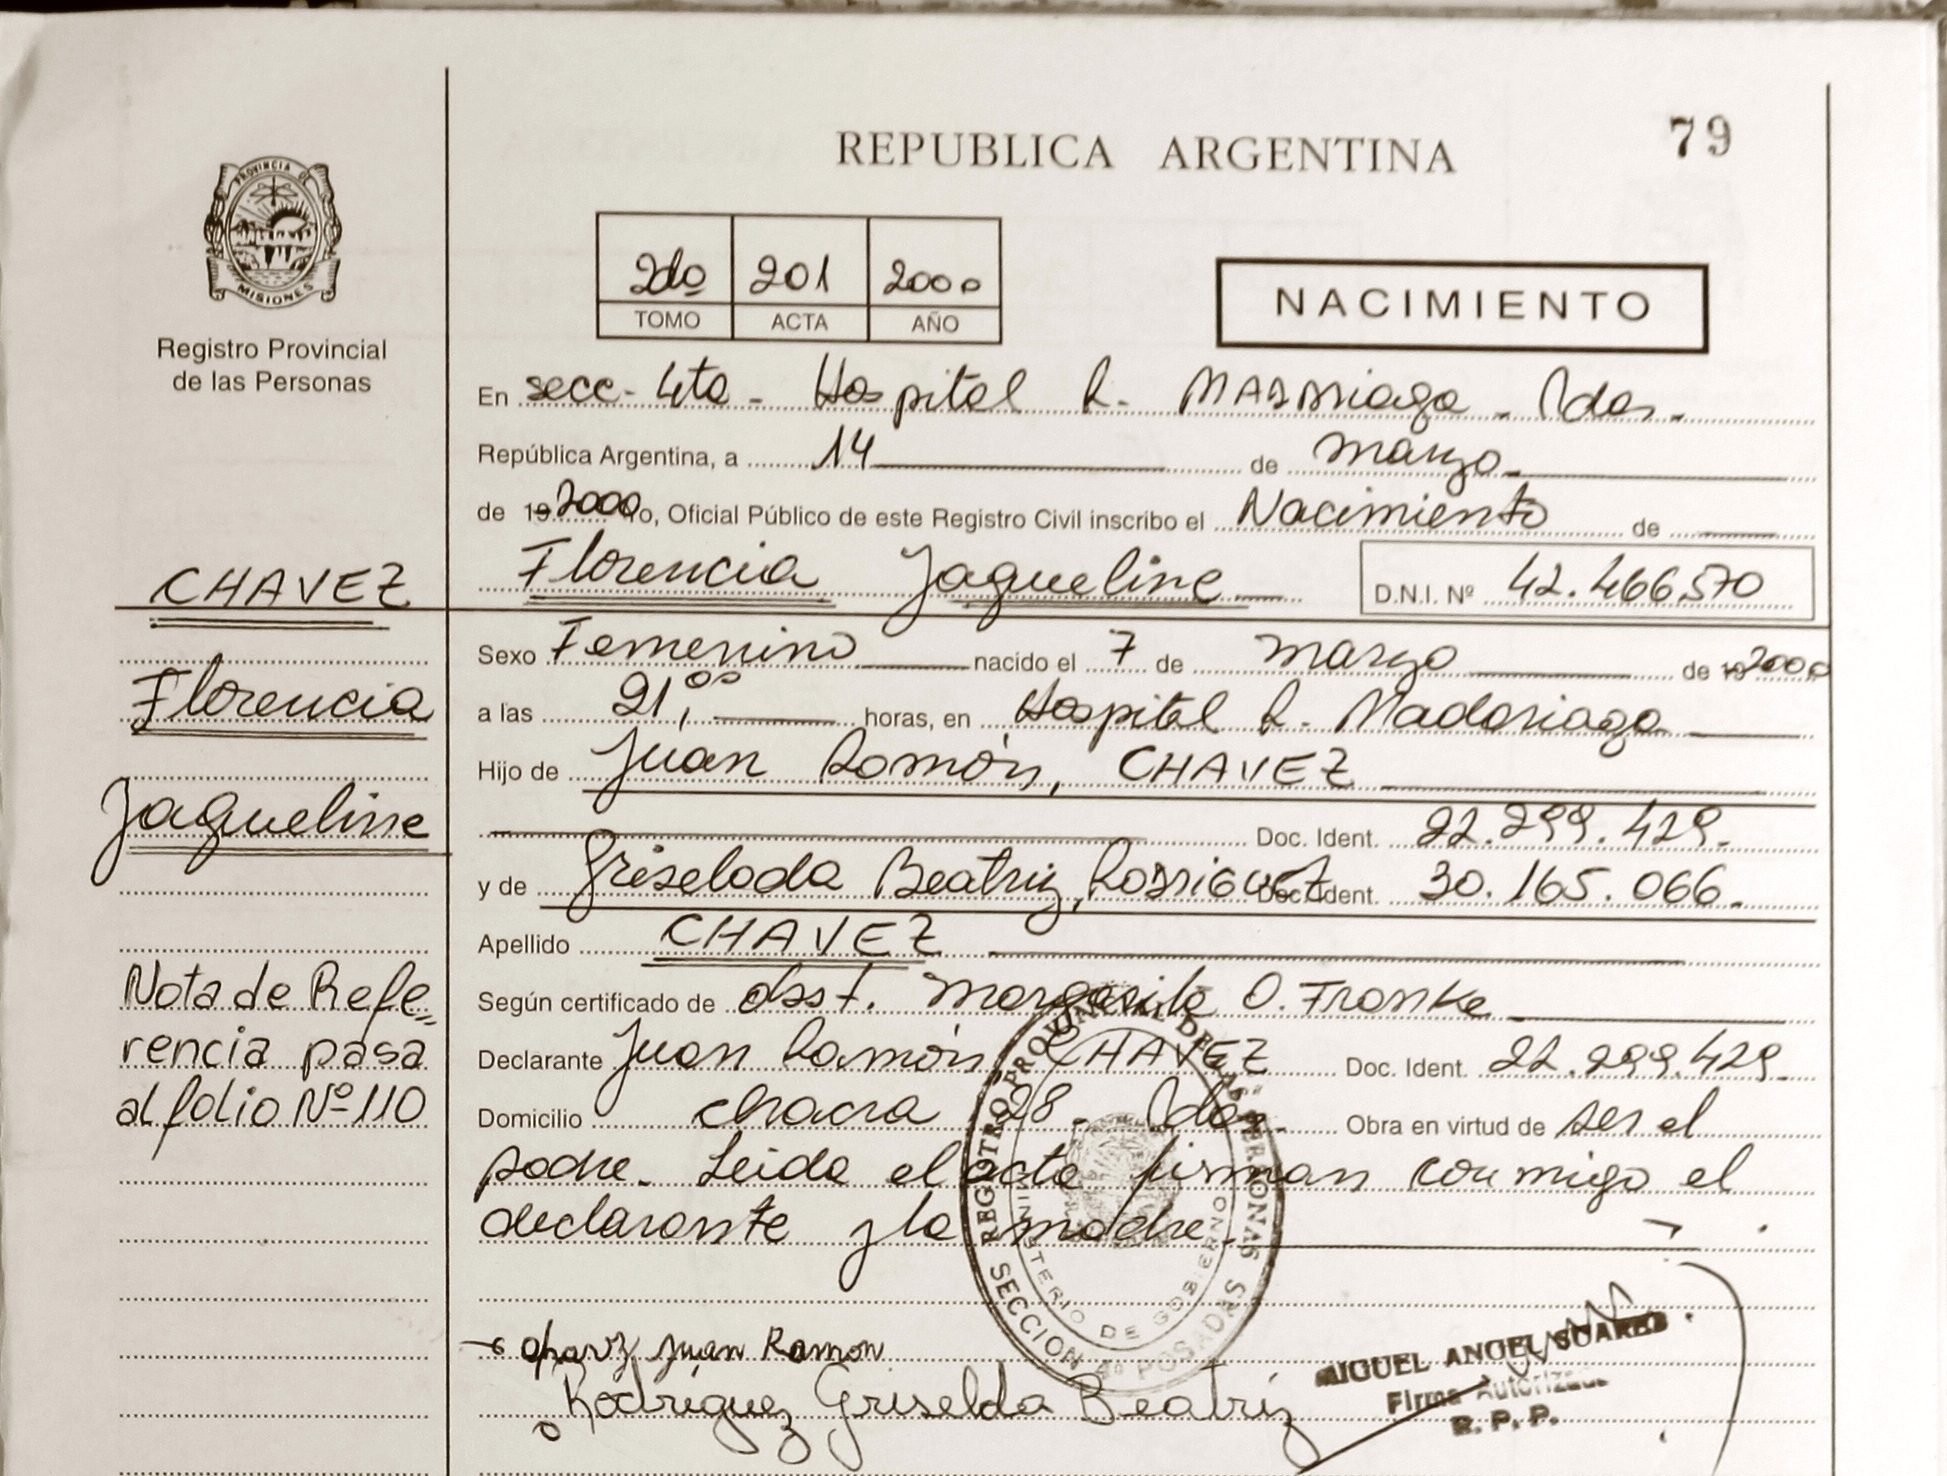 REPUBLICA ARGENTINA
79
PROVINCIA DE
MISIONES
Registro Provincial
de las Personas
2do 201 2000
TOMO ACTA AÑO
NACIMIENTO
En secc- 4ta - Hospital R. MADARiaga - Pdas.
República Argentina, a 14 de marzo
de 19 2000 yo, Oficial Público de este Registro Civil inscribo el Nacimiento de
Florencia Jaqueline D.N.I. Nº 42.466.570
CHAVEZ
Florencia
Jaqueline
Sexo Femenino nacido el 7 de marzo de 19 2000
a las 21,00 horas, en Hospital R. Madariaga
Hijo de Juan Ramón, CHAVEZ
Doc. Ident. 22.299.429.
y de Griselda Beatriz, RODRIGUEZ Doc. Ident. 30.165.066.
Apellido CHAVEZ
Según certificado de obst. Margarita O. Franke
Declarante Juan Ramón CHAVEZ Doc. Ident. 22.299.429.
Domicilio chacra 28 - Pdas. Obra en virtud de ser el
padre. Leida el acta firman conmigo el
declarante y la madre.
Nota de Refe
rencia pasa
al folio Nº 110
REGISTRO PROVINCIAL DE LAS PERSONAS
MINISTERIO DE GOBIERNO
SECCION 4ª POSADAS
Juan Ramon
Rodriguez Griselda Beatriz
MIGUEL ANGEL SUAREZ
Firma Autorizada
R. P. P.